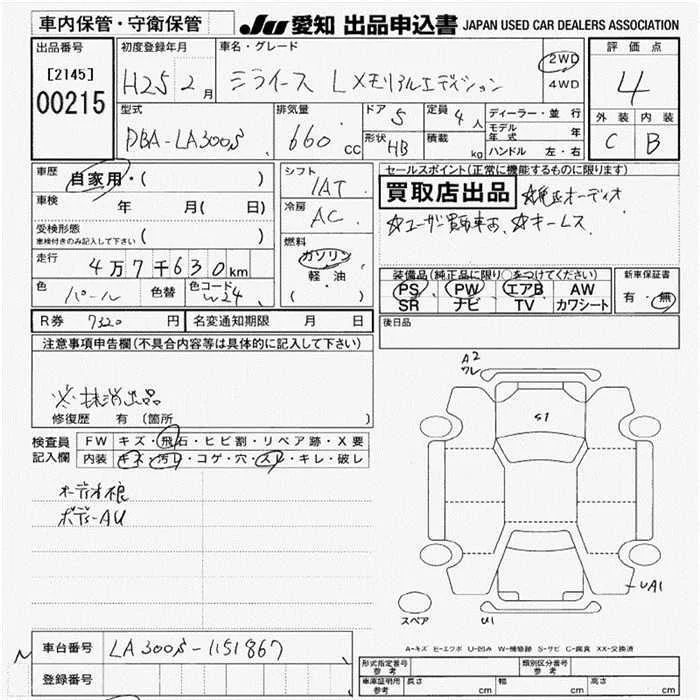 車内保管・守衛保管 JU 愛知 出品申込書 JAPAN USED CAR DEALERS ASSOCIATION
出品番号 初度登録年月 車名・グレード 評価点
[2145] H25 2月 ミライース L メモリアルエディション 2WD 4
00215 4WD
型式 排気量 ドア 5 定員 4人 ディーラー・並行 外装 内装
DBA-LA300S 660cc 形状 HB 積載 kg モデル年式 年 C B
ハンドル 左・右
車歴 自家用・( ) シフト セールスポイント(正常に機能するものに限ります)
IAT 買取店出品 ☆純正オーディオ
車検 年 月( 日) 冷房 ☆ユーザー買取車両、☆キーレス
AC
受検形態 ( )
車検付きのみ記入して下さい 燃料
走行 4万7千630km ガソリン 装備品(純正品に限り○をつけてください) 新車保証書
軽・油 PS PW エアB AW 有・無
色 パール 色替 色コード W24 ( ) SR ナビ TV カワシート
R券 7320円 名変通知期限 月 日 後日品
注意事項申告欄(不具合内容等は具体的に記入して下さい)
※抹消出品
修復歴 有 (箇所 )
検査員 FW キズ・飛石・ヒビ割・リペア跡・X要
記入欄 内装 キズ・汚レ・コゲ・穴・スレ・キレ・破レ
オーディオ根
ボディ-AU
A2
ワレ
S1
UA1
スペア U1
A-キズ E-エクボ U-凹み W-補修跡 S-サビ C-腐食 XX-交換済
車台番号 LA300S-1151867
登録番号
形式指定番号 参考 類別区分番号 参考
車庫証明用 参考 長さ cm 幅 cm 高さ cm